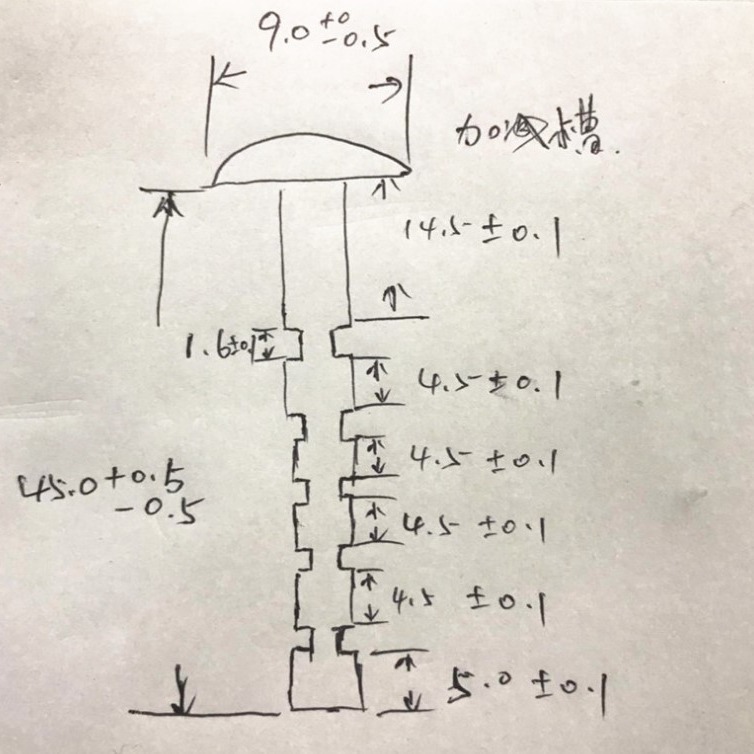 9.0 +0 -0.5
加减槽
14.5 ± 0.1
1.6±0.1
4.5 ± 0.1
4.5 ± 0.1
45.0 +0.5 -0.5
4.5 ± 0.1
4.5 ± 0.1
5.0 ± 0.1